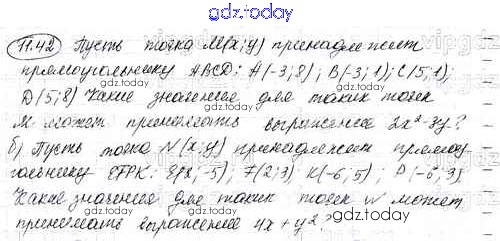 gdz.today
11.42 Пусть точка M(x; y) принадлежит
прямоугольнику ABCD: A(-3; 8); B(-3; 1); C(5; 1);
D(5; 8) Какие значения для таких точек
M может принимать выражение 2x²-3y?
б) Пусть точка N(x; y) принадлежит прямоу-
гольнику EFPK: E(2; -5); F(2; 3), K(-6; 5) P(-6; 3)
Какие значения для таких точек N может
принимать выражение 4x + y²?
gdz.today